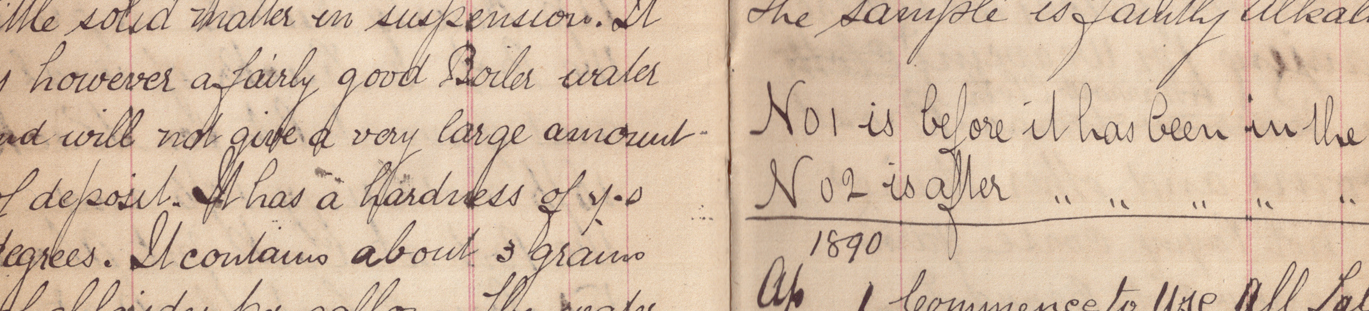 little solid matter in suspension. It
is however a fairly good Boiler water
and will not give a very large amount
of deposit. It has a hardness of
degrees. It contains about 3 grains
of chlorides per gallon. The water
The sample is faintly Alkal
No 1 is before it has been in the
No 2 is after " " " " "
1890
Ap 1 Commence to Use All